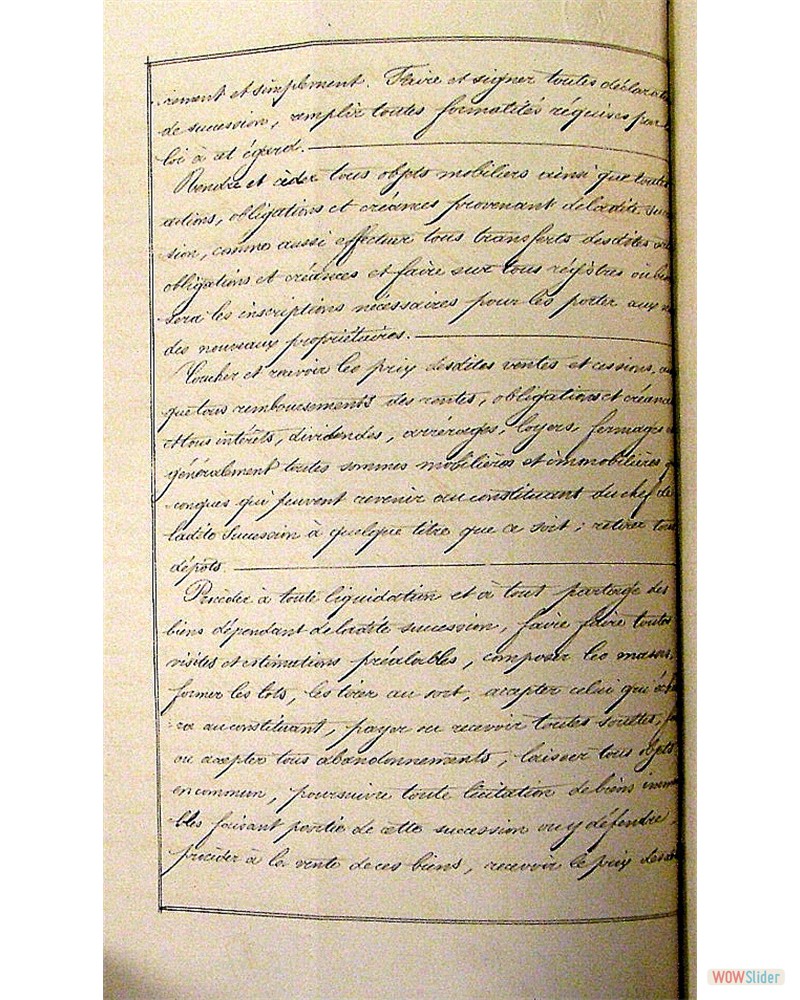 rement et simplement. Faire et signer toutes déclarati
de succession, remplir toutes formalités réquises par l
loi à cet égard.
Vendre et céder tous objets mobiliers ainsi que toutes
actions, obligations et créances provenant de ladite succ
sion, comme aussi effectuer tous transferts desdites
obligations et créances et faire sur tous régistres où bes
sera les inscriptions nécessaires pour les porter aux n
des nouveaux propriétaires.
Toucher et recevoir les prix desdites ventes et cessions, ai
que tous remboursements des rentes, obligations et créanc
et tous intérêts, dividendes, arrérages, loyers, fermages e
généralement toutes sommes mobilières et immobilières q
conques qui peuvent revenir au constituant du chef de
ladite succession à quelque titre que ce soit; retirer tous
dépôts.
Procéder à toute liquidation et à tout partage des
biens dépendant de ladite succession, faire faire toutes
visites et estimations préalables, composer les masses,
former les lots, les tirer au sort, accepter celui qui éch
ra au constituant, payer ou recevoir toutes soultes, fa
ou accepter tous abandonnements, laisser tous objets
en commun, poursuivre toute licitation de biens imm
bles faisant partie de cette succession ou y défendre,
procéder à la vente de ces biens, recevoir le prix des
WOWSlider